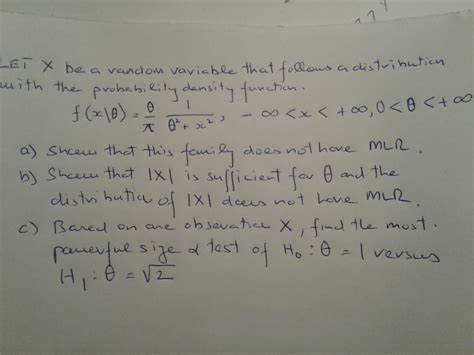 LET X be a random variable that follows a distribution
with the probability density function.
f(x|θ) = θ/π 1/(θ²+x²), -∞<x<+∞, 0<θ<+∞
a) Show that this family does not have MLR.
b) Show that |X| is sufficient for θ and the
distribution of |X| does not have MLR.
c) Based on one observation X, find the most.
powerful size α test of H₀: θ = 1 versus
H₁: θ = √2